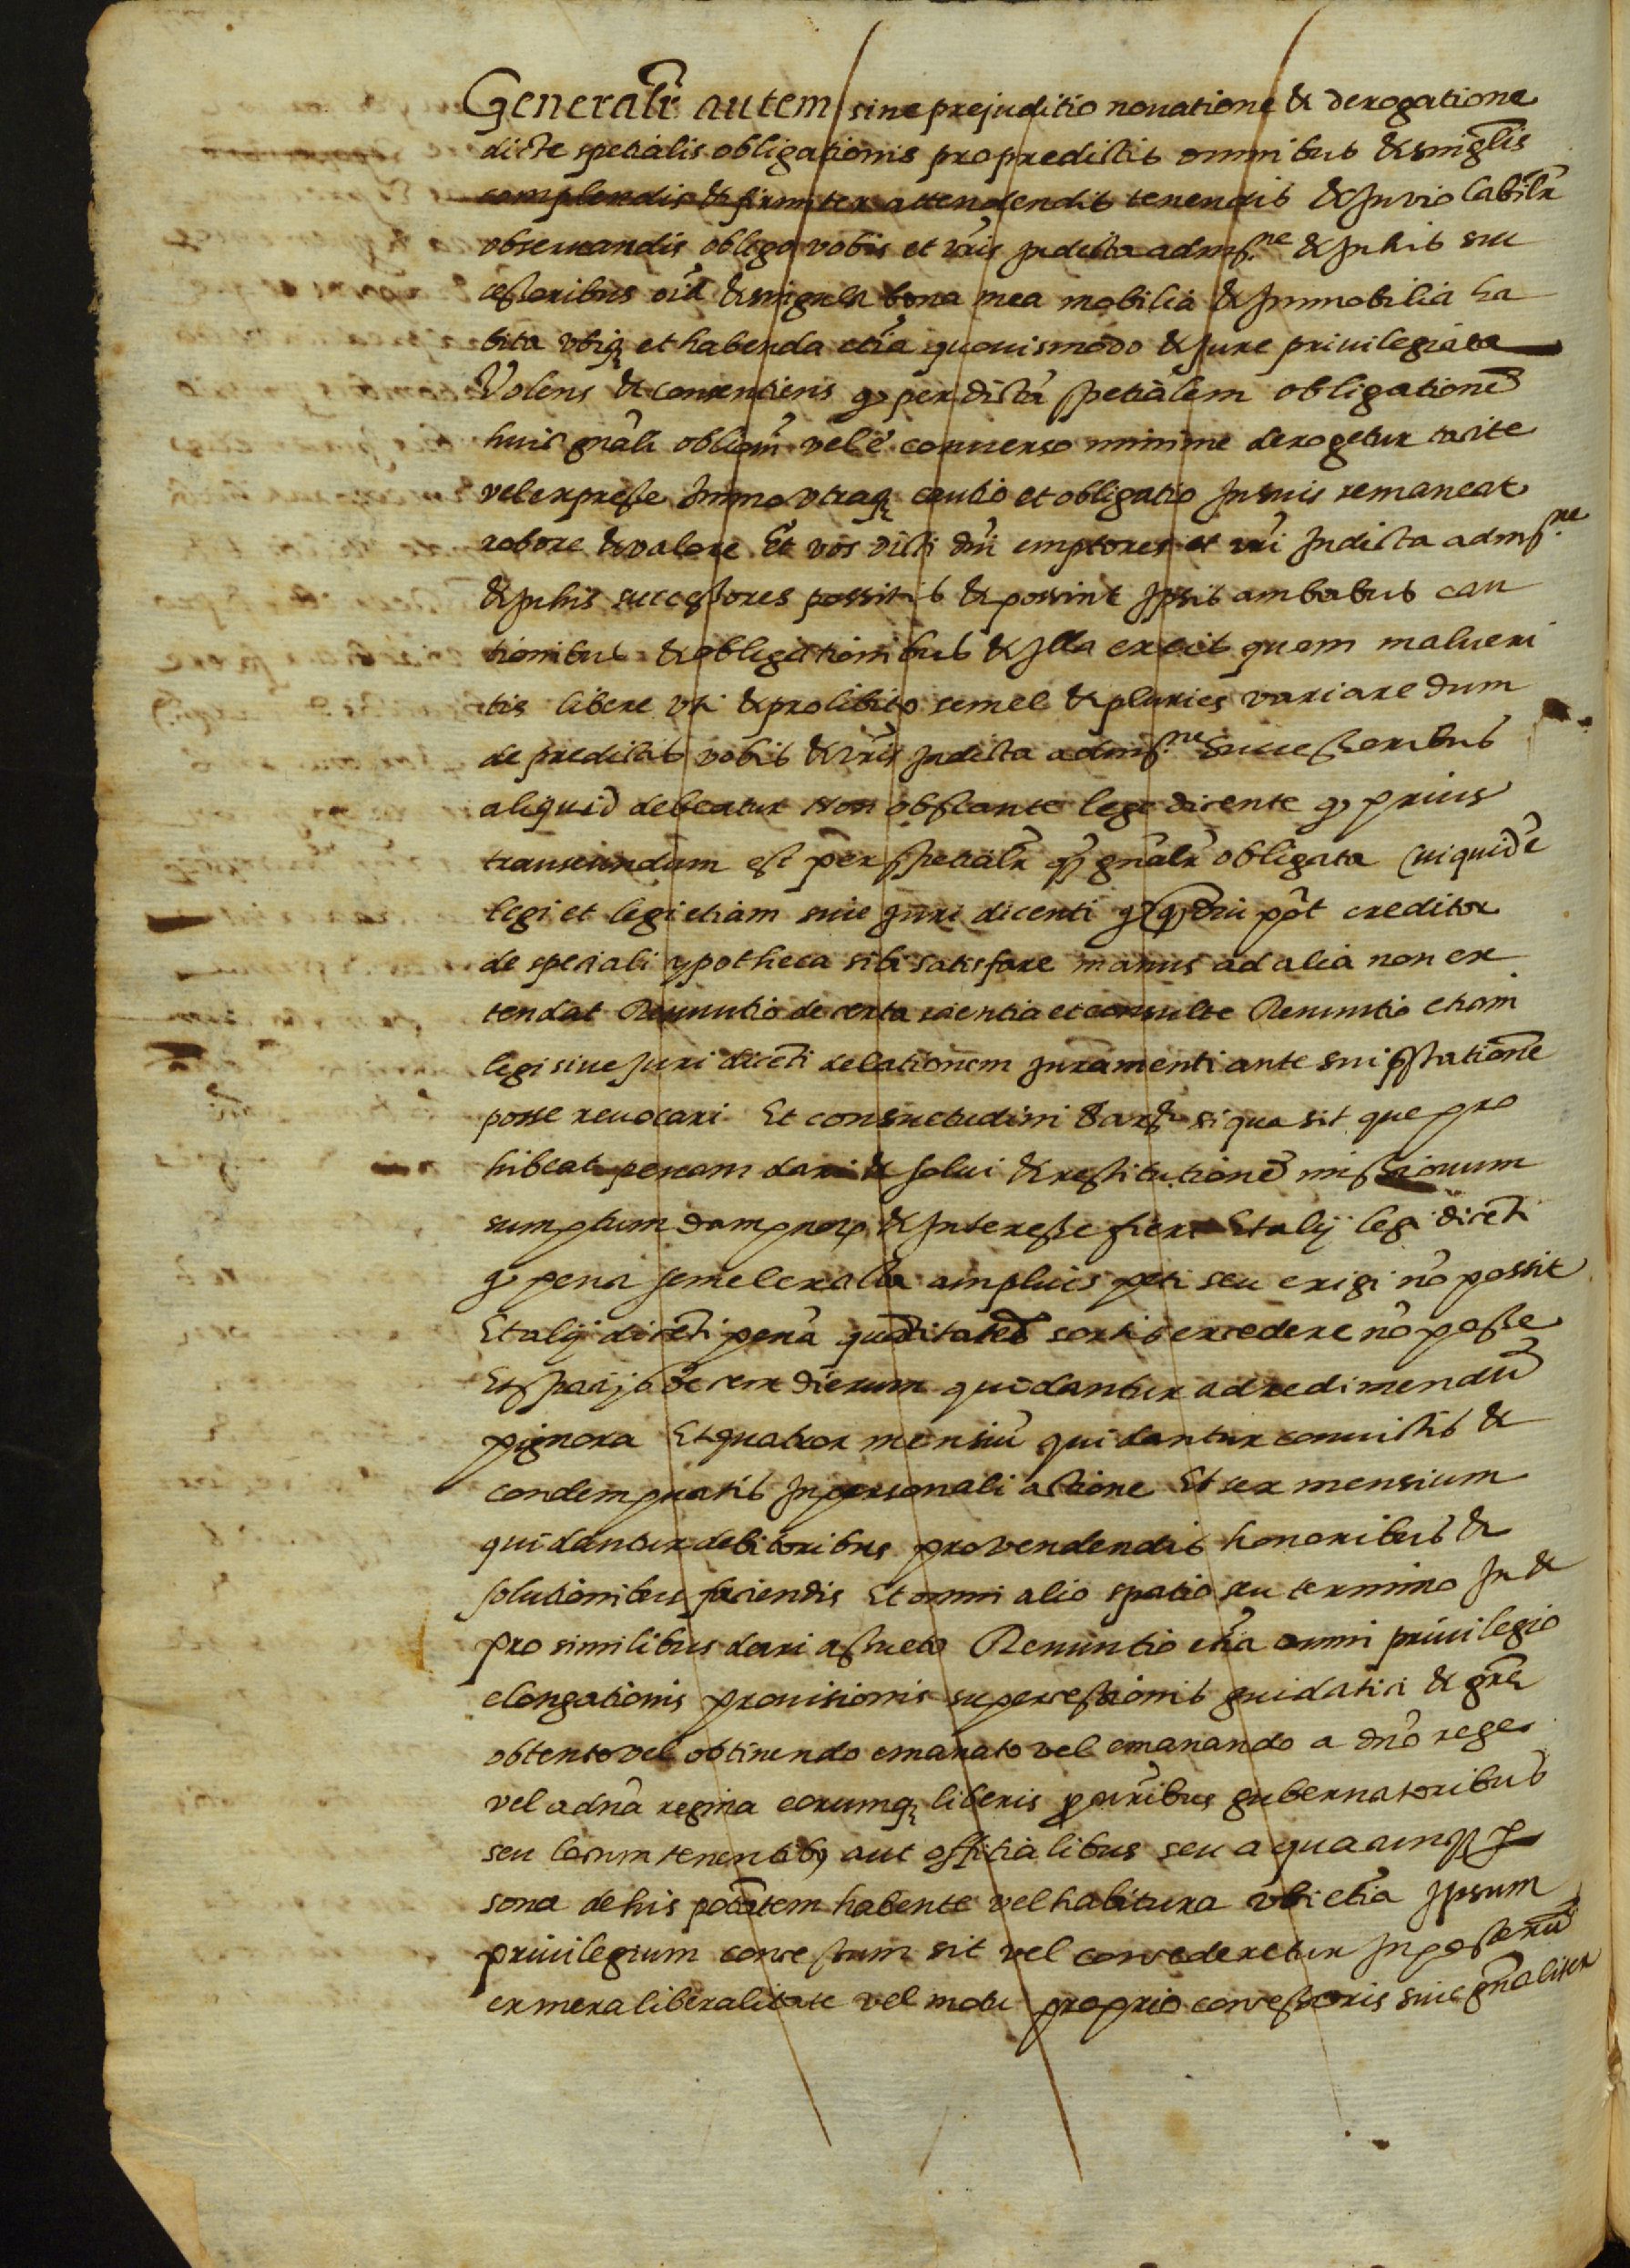 Generalr̃ autem sine prejuditio nouatione & derogatione
dicte spetialis obligationis pro predictis omnibus & singłis
complendis & firmiter attendendis tenendis & Inviolabilr̃
obseruandis obligo vobis et vr̃is In dicta admſ.ne & In his suc
cessoribus oĩa & singula bona mea mobilia & Immobilia ha
bita vbiq; et habenda etiã quouismodo & Jure privilegiata
Volens & consentiens q̃ per dictã spetialem obligationẽ
huic gñali obliõni vel è converso minime derogetur tacite
vel expresse Immo vtraq; cautio et obligatio In suis remaneat
robore & valore Et vos dicti dñi emptores et vr̃i In dicta admſ.ne
& In his successores possitis & possint Ipsis ambabus cau
tionibus & obligationibus & Illa ex eis quam malueri
tis libere vti & pro libito semel & pluries variare dum
de predictis vobis & vr̃is In dicta admſ.ne successoribus
aliquid debeatur Non obstante lege dicente q̃ prius
transeundum est per spetialr̃ q̃ gñalr̃ obligata Cui quidẽ
legi et legi etiam siue Juri dicenti q̃ q̃diu põt creditor
de speciali ypotheca sibi satisfare manus ad alia non ex
tendat Renuntio de certa scientia et consulte Renuntio etiam
legi siue Juri dicẽti delationem Juramenti ante sui pſtationẽ
posse reuocari Et consuetudini Barſe si qua sit que pro
hibeat penam dari & solui & restitutionẽ missionum
sumptuum dampnorῃ & Interesse fieri Et alij legi dicẽti
q̃ pena semel exacta amplius peti seu exigi nõ possit
Et alij dicẽti penã quãtitatẽ sortis excedere nõ posse
Et spacijs decem dierum qui dantur ad redimendũ
pignora Et quatuor mensiũ qui dantur convictis &
condempnatis In personali actione Et sex mensium
qui dantur debitoribus pro vendendis honoribus &
solutionibus faciendis Et omni alio spatio seu termino In &
pro similibus dari assueto Renuntio etiã omni privilegio
elongationis prouisionis supercessionis guidatici & grẽ
obtento vel obtinendo emanato vel emanando a dño rege
vel a dñã regina eorumq; liberis pr̃uribus gubernatoribus
seu locum tenentibꝰ aut offitialibus seu a quacumq; p
sona de his põtatem habente vel habitura vbi etiã Ipsum
privilegium concessum sit vel concederetur In posterũ
ex mera liberalitate vel motu proprio concessoris siue gñaliter